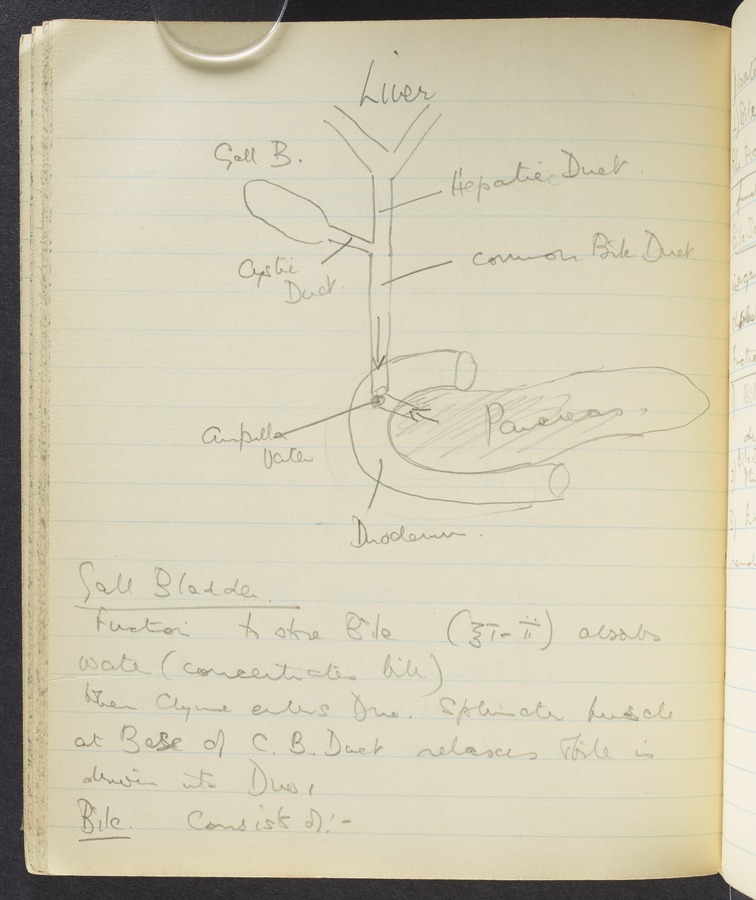 Liver
Gall B.
Hepatic Duct.
Cystic
Duct.
common Bile Duct
Ampulla
Vater
Pancreas.
Duodenum.
Gall Bladder.
Function to store Bile (ʒi-ii) absorbs
water (concentrates bile)
When Chyme enters Duo. Sphincter muscle
at Base of C. B. Duct relaxes & bile is
driven into Duo.
Bile. Consists of:-